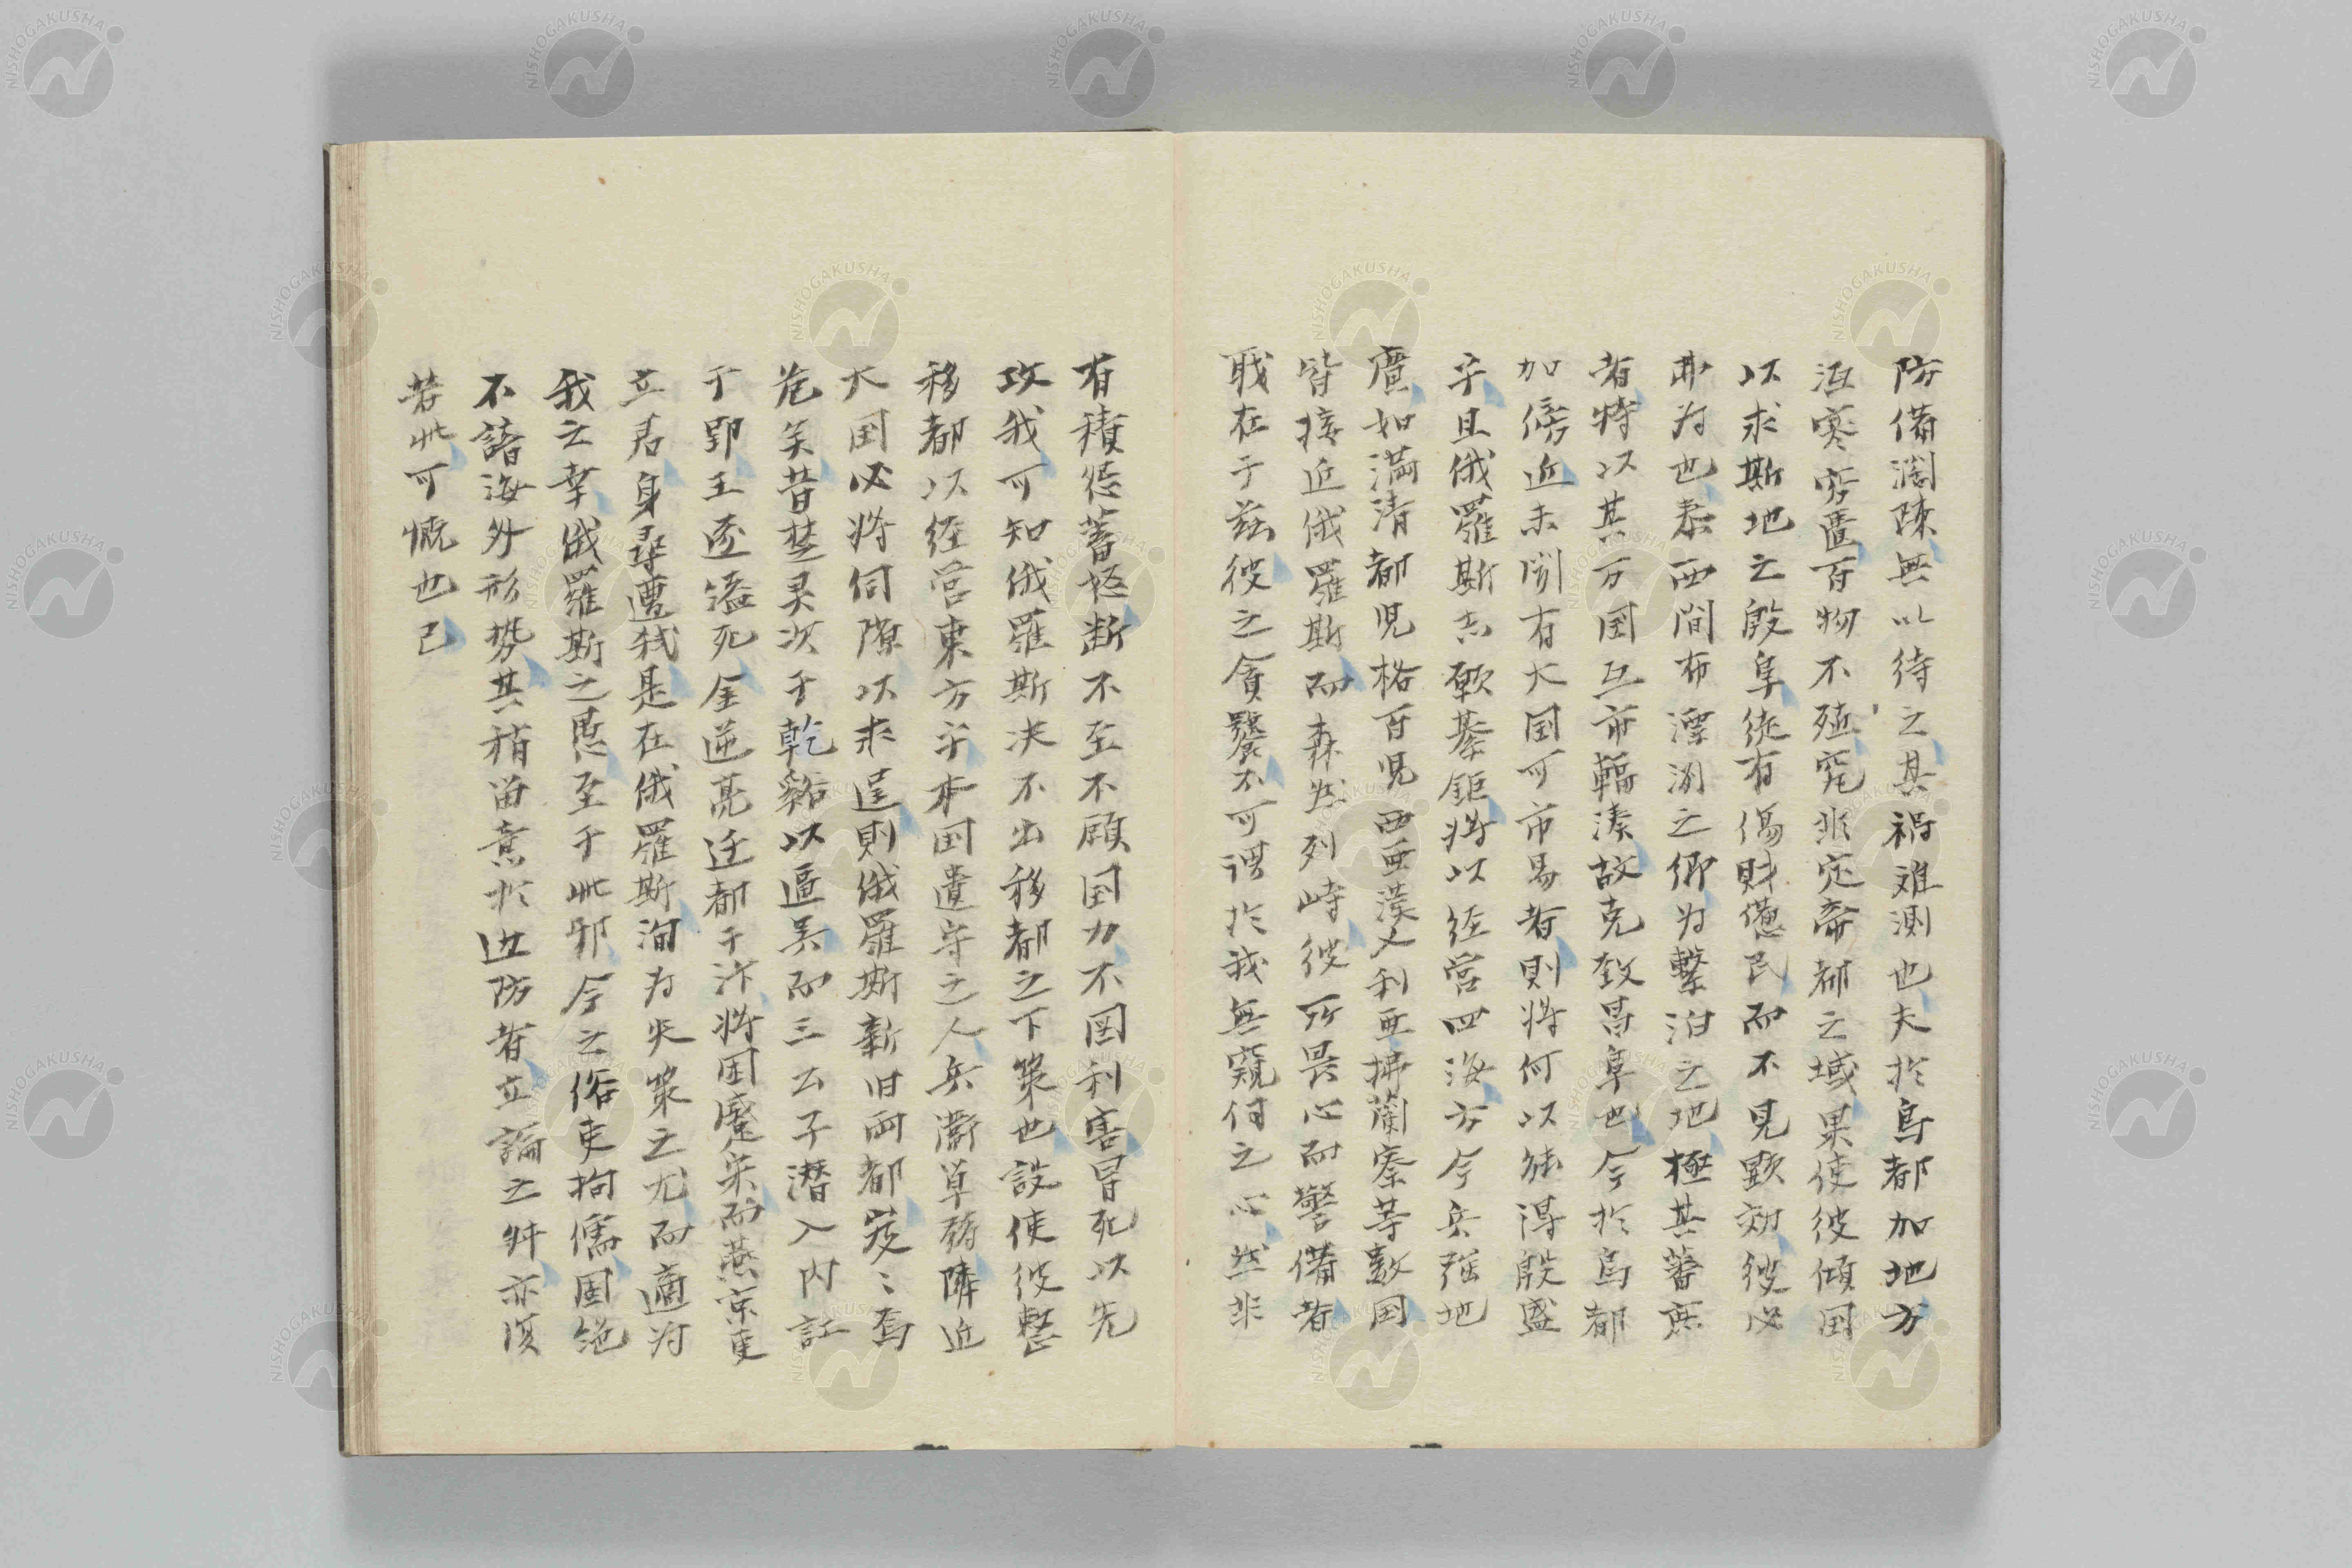 防備濶陳無以待之其禍難測也夫於烏都加地方
沍寒窮匱百物不殖寔非定帝都之域果使彼傾国
以求斯地之殷阜徒有傷財憊民而不見顕効彼必
弗為也泰西間布漂洌之鄉為繋泊之地極其蕃庶
者特以其万国互市輻湊故克致昌阜也今於烏都
加傍近未聞有大国可市易者則将何以能得殷盛
乎且俄羅斯志歐基鉅将以経営四海方今兵强地
廣如満清都児格百児西亜漢乂利亜拂蘭察等数国
皆接近俄羅斯而森然列峙彼所畏心而警備者
職在于茲彼之貪饕不可谓於我無窺伺之心然非
有積惩蓄怒断不至不顧国力不図利害冒死以先
攻我可知俄羅斯決不出移都之下策也設使彼整
移都以経営東方乎本国遺守之人兵凘草弱隣近
大国必将伺隙以求逞則俄羅斯新旧両都岌〻焉
危矣昔楚灵次于乾谿以逼吴而三公子潜入内訌
于郢王遂縊死金逆亮迁都于汴将困蹙宋而燕京更
立君身尋遭弑是在俄羅斯洵为失策之尤而適为
我之幸俄羅斯之愚至于此邪今之俗吏拘儒固絶
不諳海外形势其稍留意於边防者立論之舛亦复
若此可慨也已